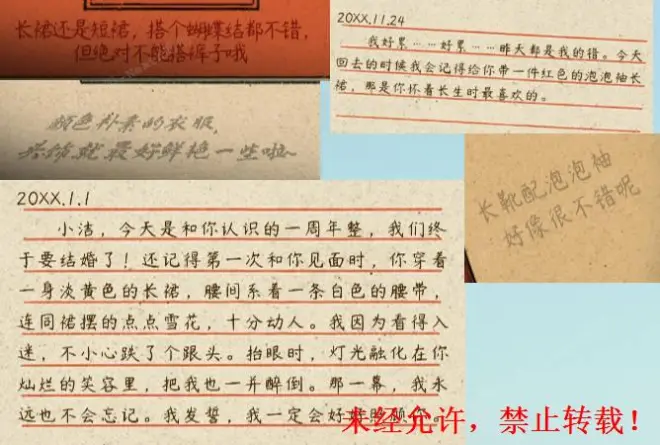 长裙还是短裙，搭个蝴蝶结都不错，
但绝对不能搭裤子哦
颜色朴素的衣服，
头饰就最好鲜艳一些啦
20XX.11.24
我好累……好累……昨天都是我的错。今天
回去的时候我会记得给你带一件红色的泡泡袖长
裙，那是你怀着长生时最喜欢的。
长靴配泡泡袖
好像很不错呢
20XX.1.1
小洁，今天是和你认识的一周年整，我们终
于要结婚了！还记得第一次和你见面时，你穿着
一身淡黄色的长裙，腰间系着一条白色的腰带，
连同裙摆的点点雪花，十分动人。我因为看得入
迷，不小心跌了个跟头。抬眼时，灯光融化在你
灿烂的笑容里，把我也一并醉倒。那一幕，我永
远也不会忘记。我发誓，我一定会好好照顾你。
未经允许，禁止转载！